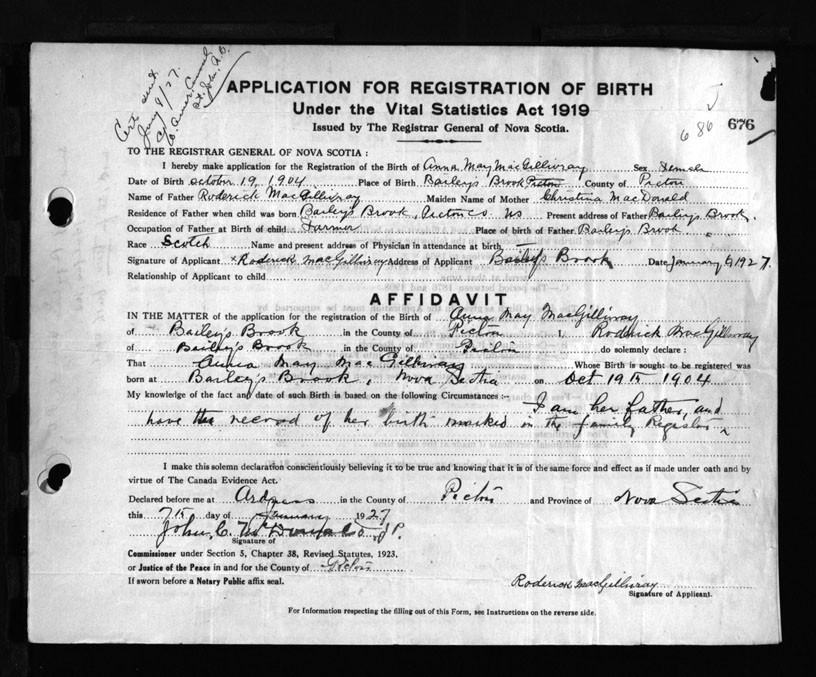 Cert sent
Jany 8/27.
c/o Amer. Consul
St. John. N.B.
APPLICATION FOR REGISTRATION OF BIRTH
Under the Vital Statistics Act 1919
Issued by The Registrar General of Nova Scotia.
686 676
TO THE REGISTRAR GENERAL OF NOVA SCOTIA :
I hereby make application for the Registration of the Birth of Anna May MacGillivray Sex Female
Date of Birth October 19, 1904 Place of Birth Bailey's Brook Pictou County of Pictou
Name of Father Roderick MacGillivray Maiden Name of Mother Christina MacDonald
Residence of Father when child was born Bailey's Brook, Pictou Co NS Present address of Father Bailey's Brook,
Occupation of Father at Birth of child Farmer Place of birth of Father Bailey's Brook
Race Scotch Name and present address of Physician in attendance at birth
Signature of Applicant x Roderick MacGillivray Address of Applicant Bailey's Brook Date January 1927.
Relationship of Applicant to child
AFFIDAVIT
IN THE MATTER of the application for the registration of the Birth of Anna May MacGillivray
of Bailey's Brook in the County of Pictou I, Roderick MacGillivray
of Bailey's Brook in the County of Pictou do solemnly declare :
That Anna May MacGillivray Whose Birth is sought to be registered was
born at Bailey's Brook, Nova Scotia on Oct 19th 1904
My knowledge of the fact and date of such Birth is based on the following Circumstances :- I am her father, and
have the record of her birth marked in the family Register.
I make this solemn declaration conscientiously believing it to be true and knowing that it is of the same force and effect as if made under oath and by
virtue of The Canada Evidence Act.
Declared before me at Ardness in the County of Pictou and Province of Nova Scotia
this 7th day of January 1927
John C. McDonald J.P.
Signature of
Commissioner under Section 5, Chapter 38, Revised Statutes, 1923.
or Justice of the Peace in and for the County of Pictou
If sworn before a Notary Public affix seal.
Roderick MacGillivray
Signature of Applicant.
For Information respecting the filling out of this Form, see Instructions on the reverse side.